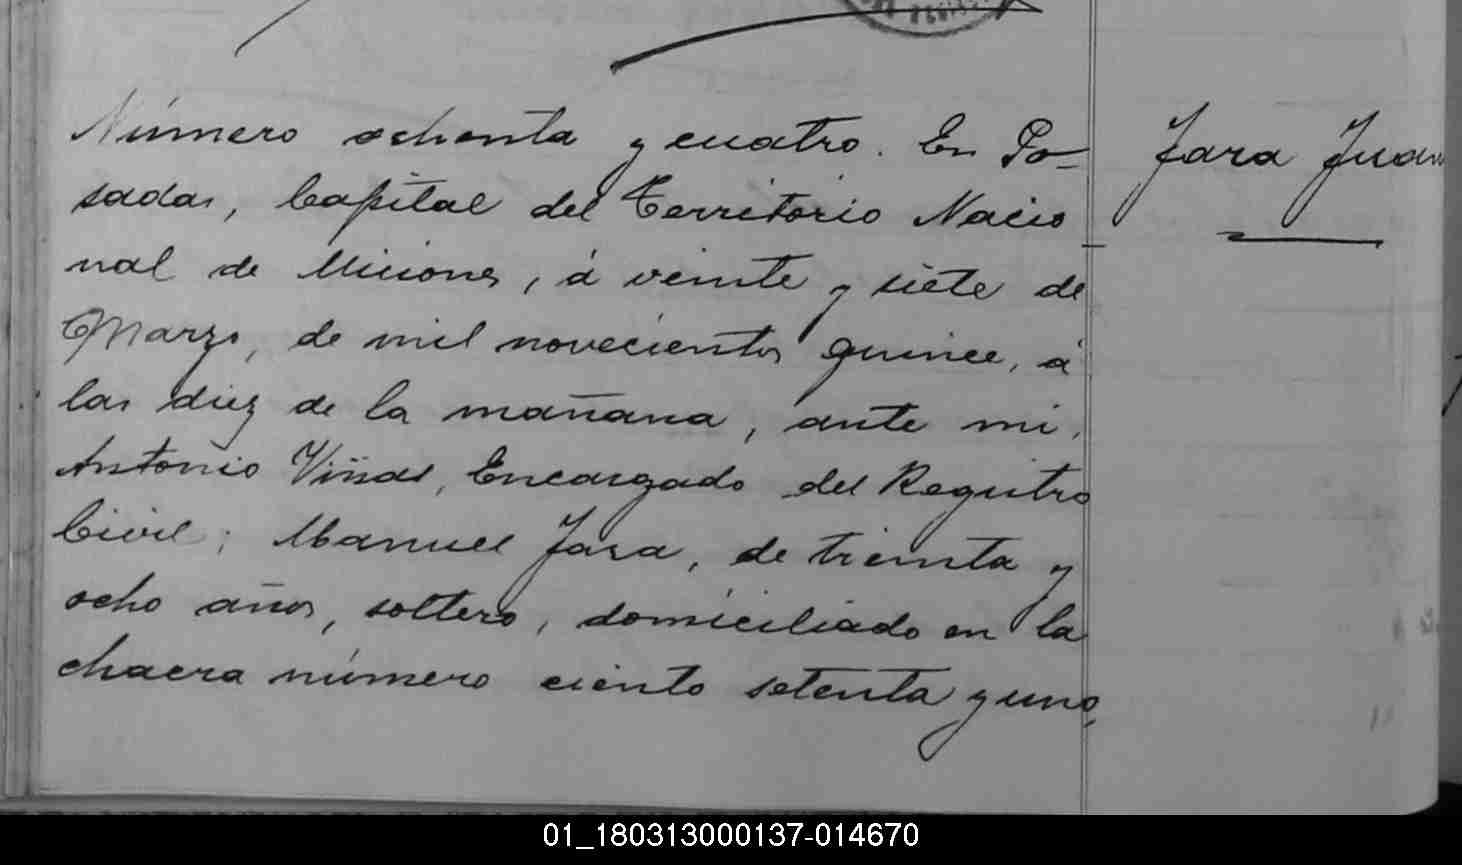 Número ochenta y cuatro. En Po-
sadas, Capital del Territorio Nacio
nal de Misiones, á veinte y siete de
Marzo, de mil novecientos quince, á
las diez de la mañana, ante mi,
Antonio Viñas, Encargado del Registro
Civil; Manuel Jara, de treinta y
ocho años, soltero, domiciliado en la
chacra número ciento setenta y uno,
Jara Juan
01_180313000137-014670